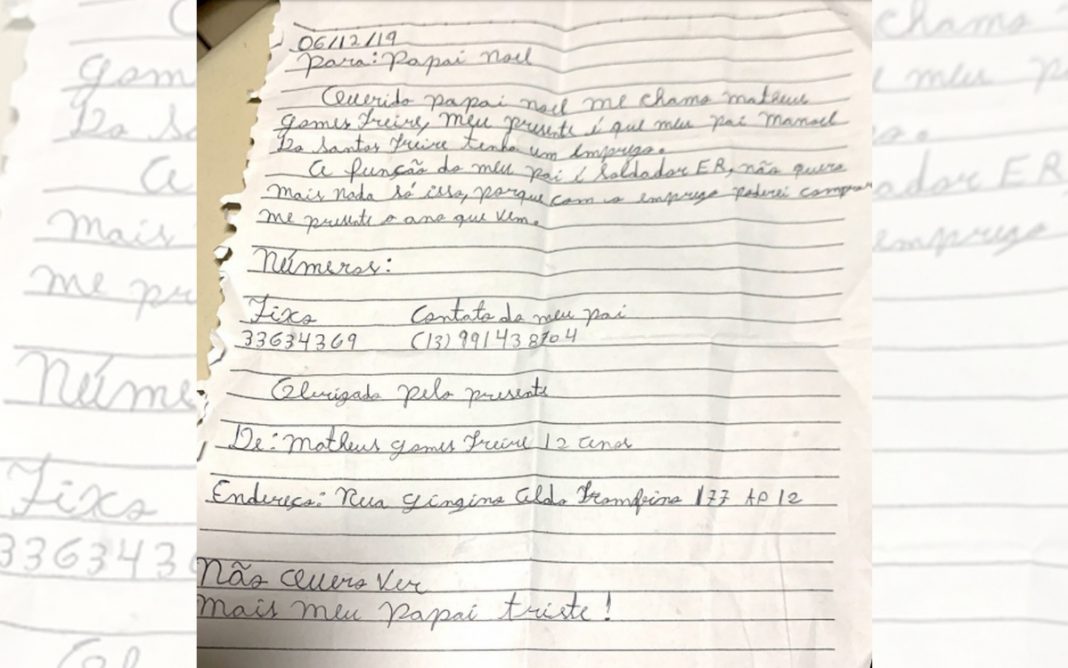 06/12/19
Para: Papai Noel
Querido papai noel me chamo matheus
gomes freire, meu presente é que meu pai Manoel
Do Santos freire tenha um emprego.
A função do meu pai é Soldador ER, não quero
mais nada só isso, porque com o emprego poderei comprar
me presente o ano que vem.
Números:
Fixo Contato do meu pai
33634369 (13) 991438704
Obrigado pelo presente
De: Matheus gomes freire 12 anos
Endereço: Rua Aldo 177 AP 12
Não quero ver
mais meu papai triste!